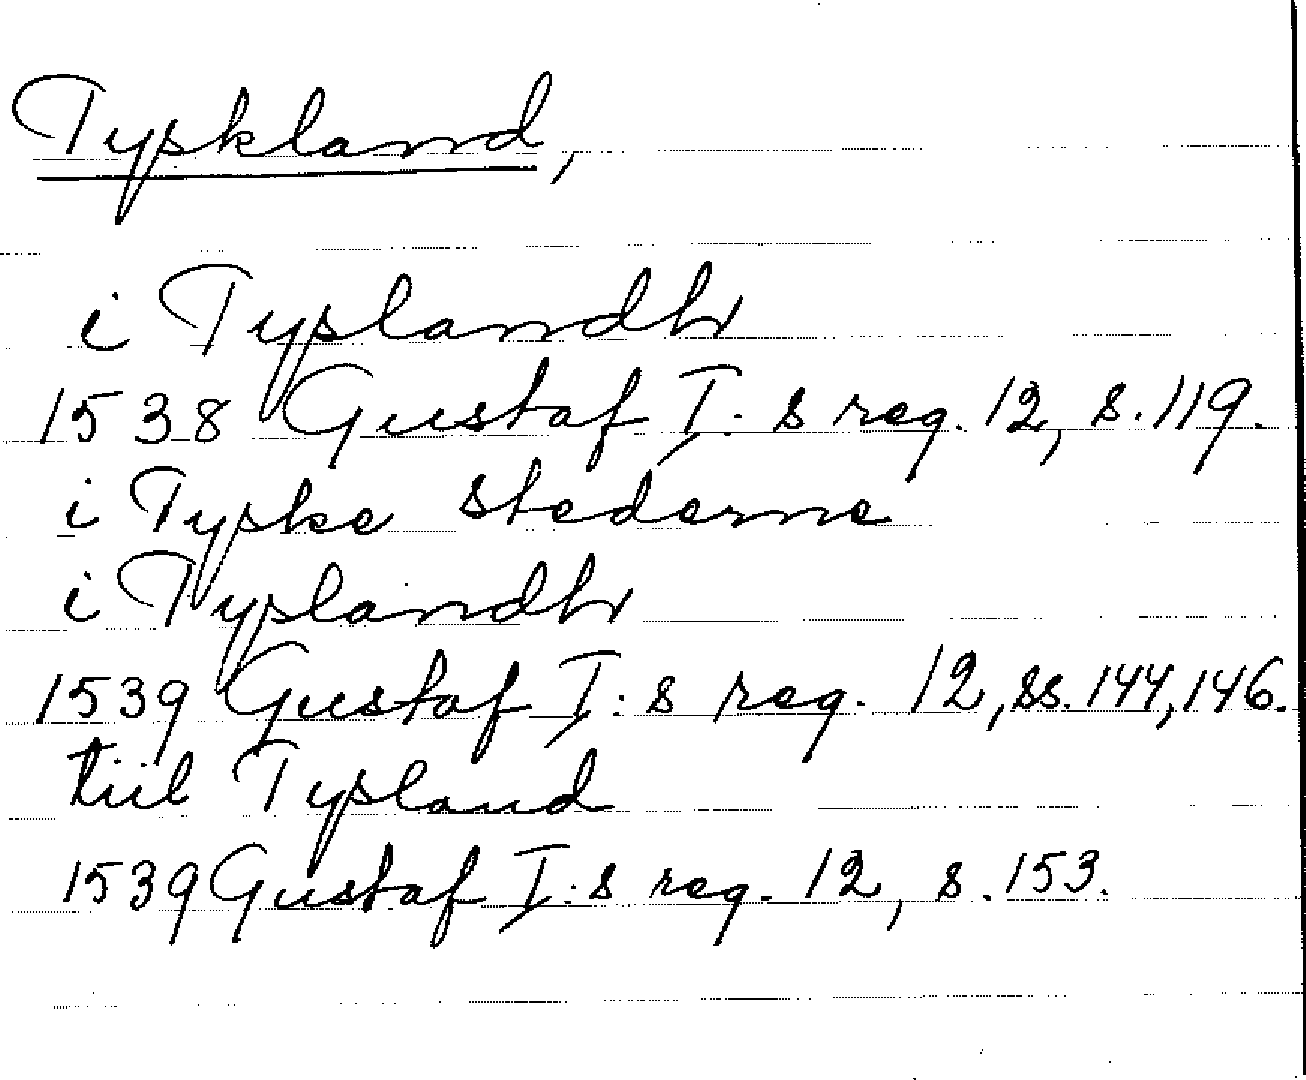 Tyskland,
i Tyslandh
1538 Gustaf I: s reg. 12, s. 119.
i Tyske stederne
i Tyslandh
1539 Gustaf I: s reg. 12, ss. 144, 146.
tiil Tysland
1539 Gustaf I: s reg. 12, s. 153.